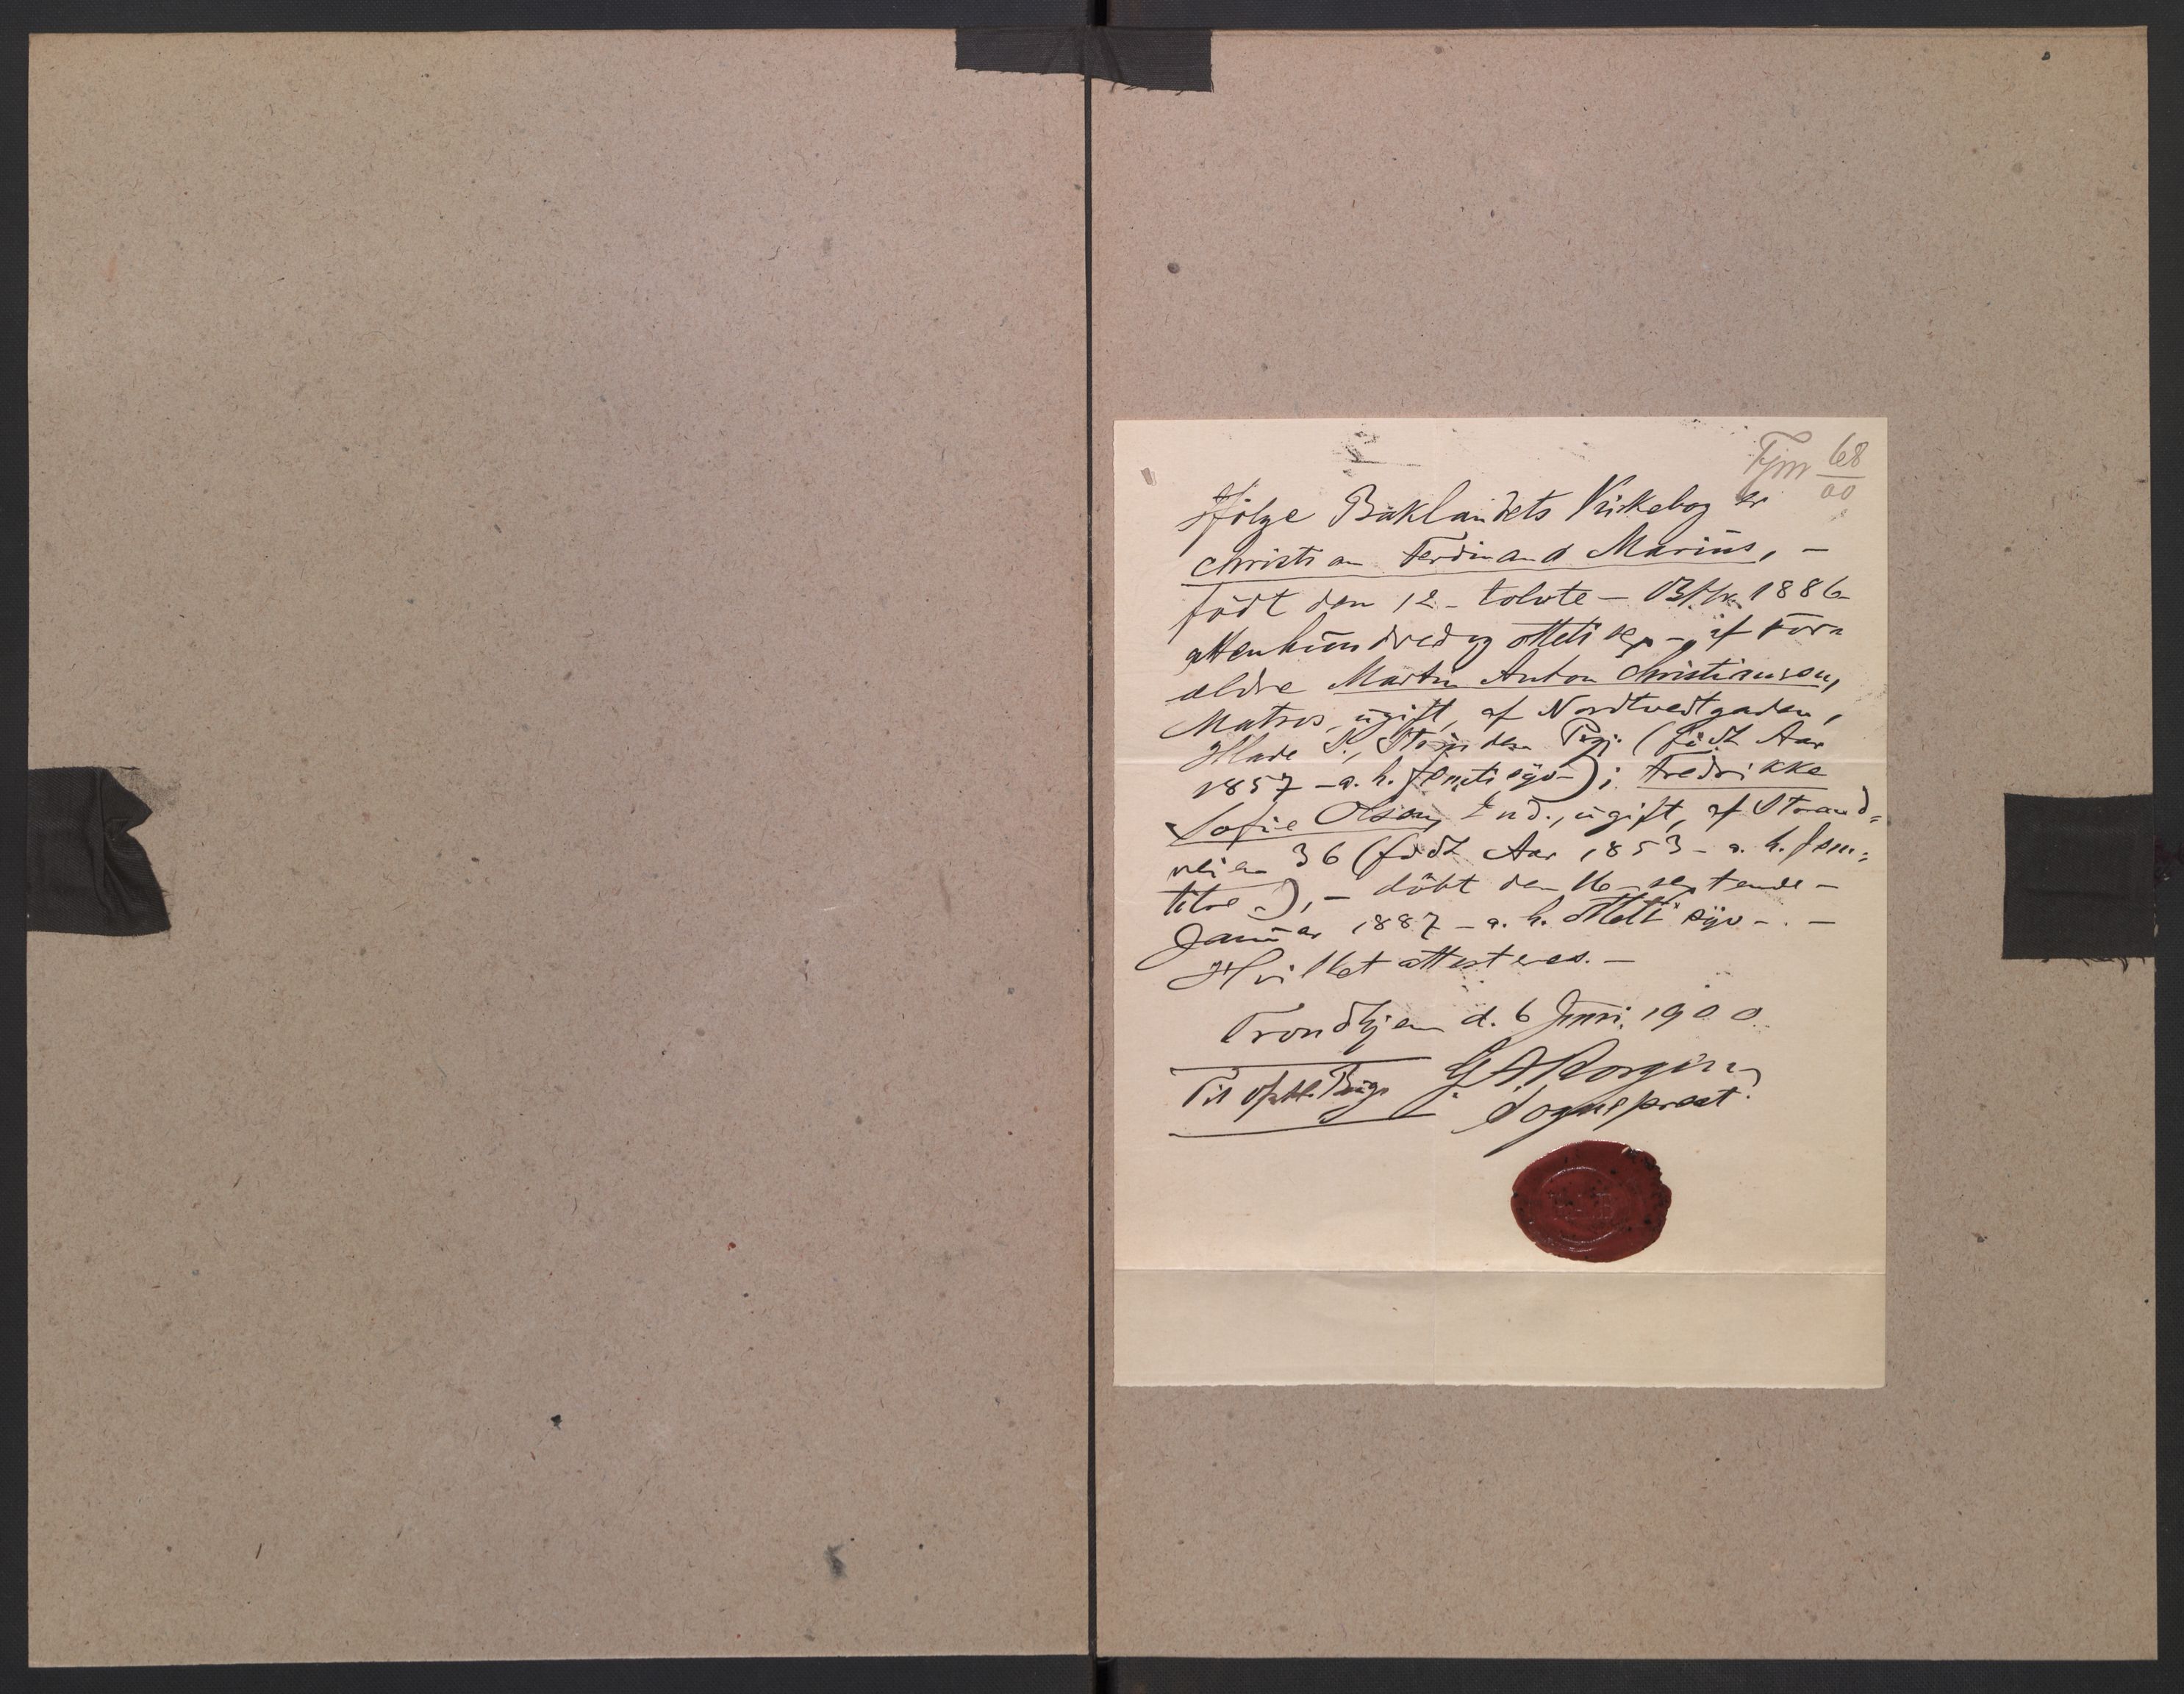 Tjm 68/00
Ifölge Baklandets Kirkebog er
Christian Ferdinand Marius, –
födt den 12 – tolvte – 1886
attenhundred og otteti sex – af For-
ældre Martin Anton Christiansen,
Matros, ugift, af Nordtvedtgaden,
Hlade S., Strinden (födt Aar
1857 – a. h. femti syv –); Fredrikke
Sofie Olsen, Ind., ugift, af Strand-
veien 36 (födt Aar 1853 – a. h. fem-
titre –), – döbt den 16 – sextende –
Januar 1887 – a. h. otteti syv – . –
Hvilket attesteres. –
Trondhjem d. 6 Juni 1900
Til Brug
Sogneprest.